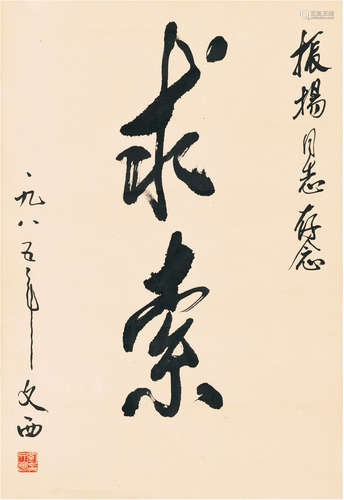 振扬同志存念
求索
一九八五年
文西